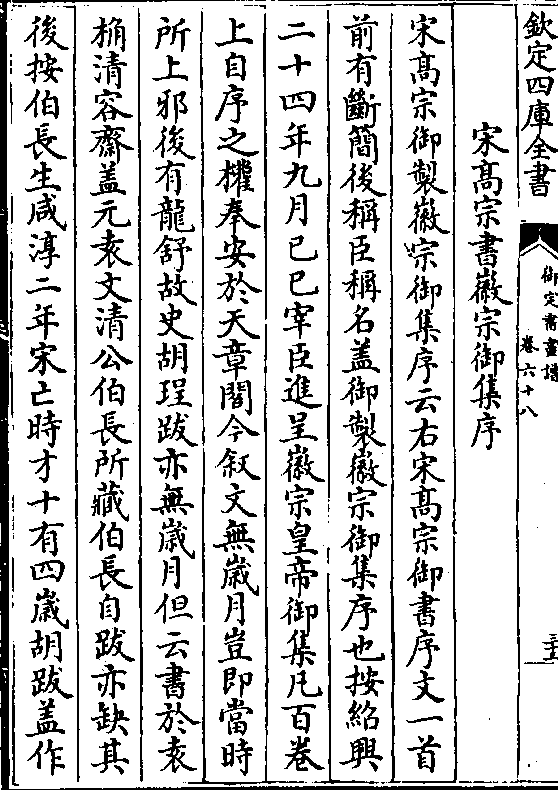 欽定四庫全書
御定書畫譜
卷六十八
三十五
宋髙宗書徽宗御集序
宋髙宗御製徽宗御集序云右宋髙宗御書序文一首
前有斷簡後稱臣稱名盖御製徽宗御集序也按紹興
二十四年九月己巳宰臣進呈徽宗皇帝御集凡百卷
上自序之權奉安於天章閣今叙文無嵗月豈即當時
所上邪後有龍舒故史胡珵跋亦無嵗月但云書於袁
桷清容齋盖元袁文清公伯長所藏伯長自跋亦缺其
後按伯長生咸淳二年宋亡時才十有四嵗胡跋盖作